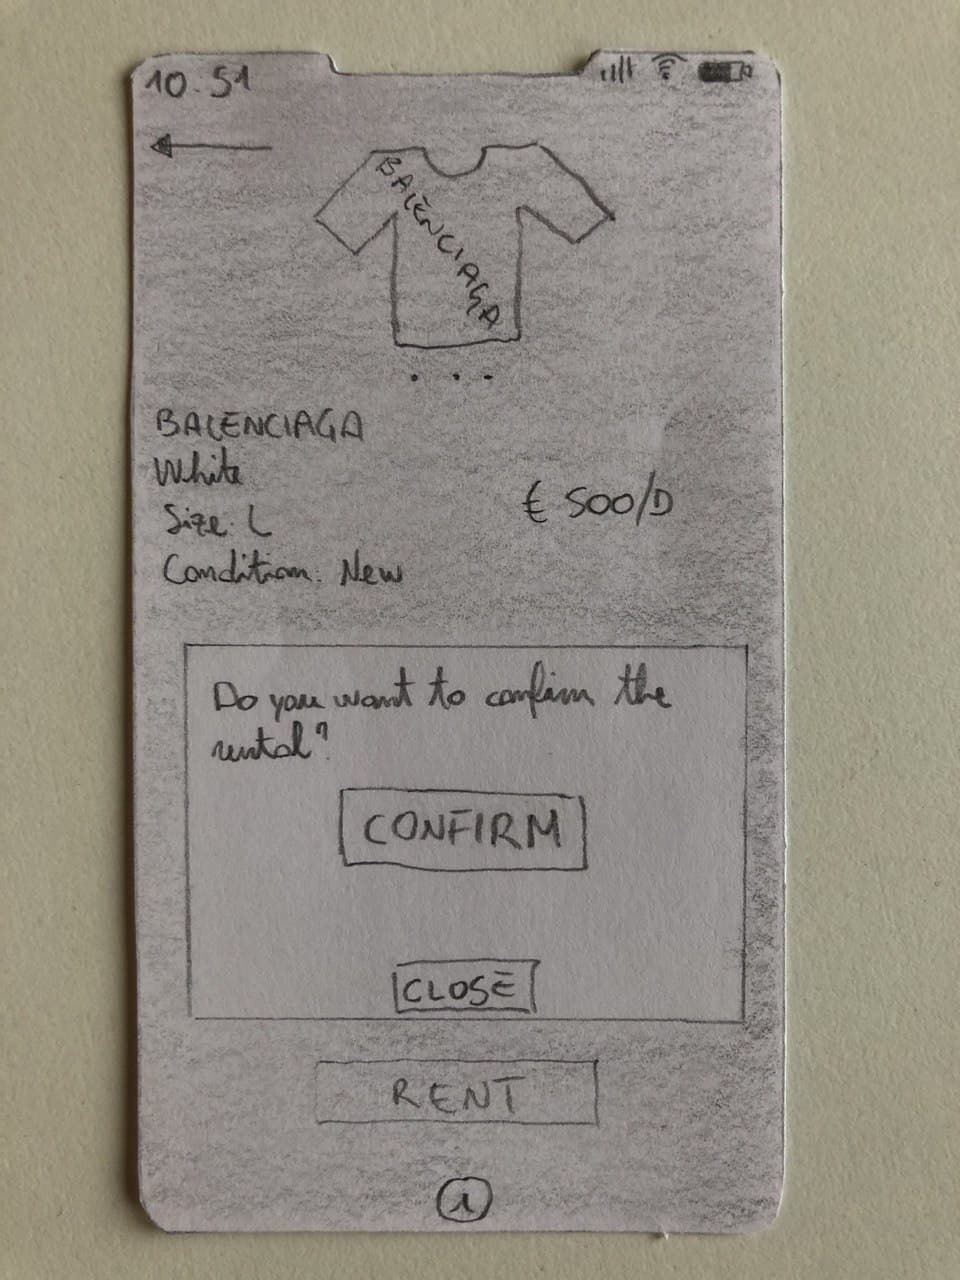 10.51
BALENCIAGA
BALENCIAGA
White
Size: L
€ 500/D
Condition: New
Do you want to confirm the
rental?
CONFIRM
CLOSE
RENT
i